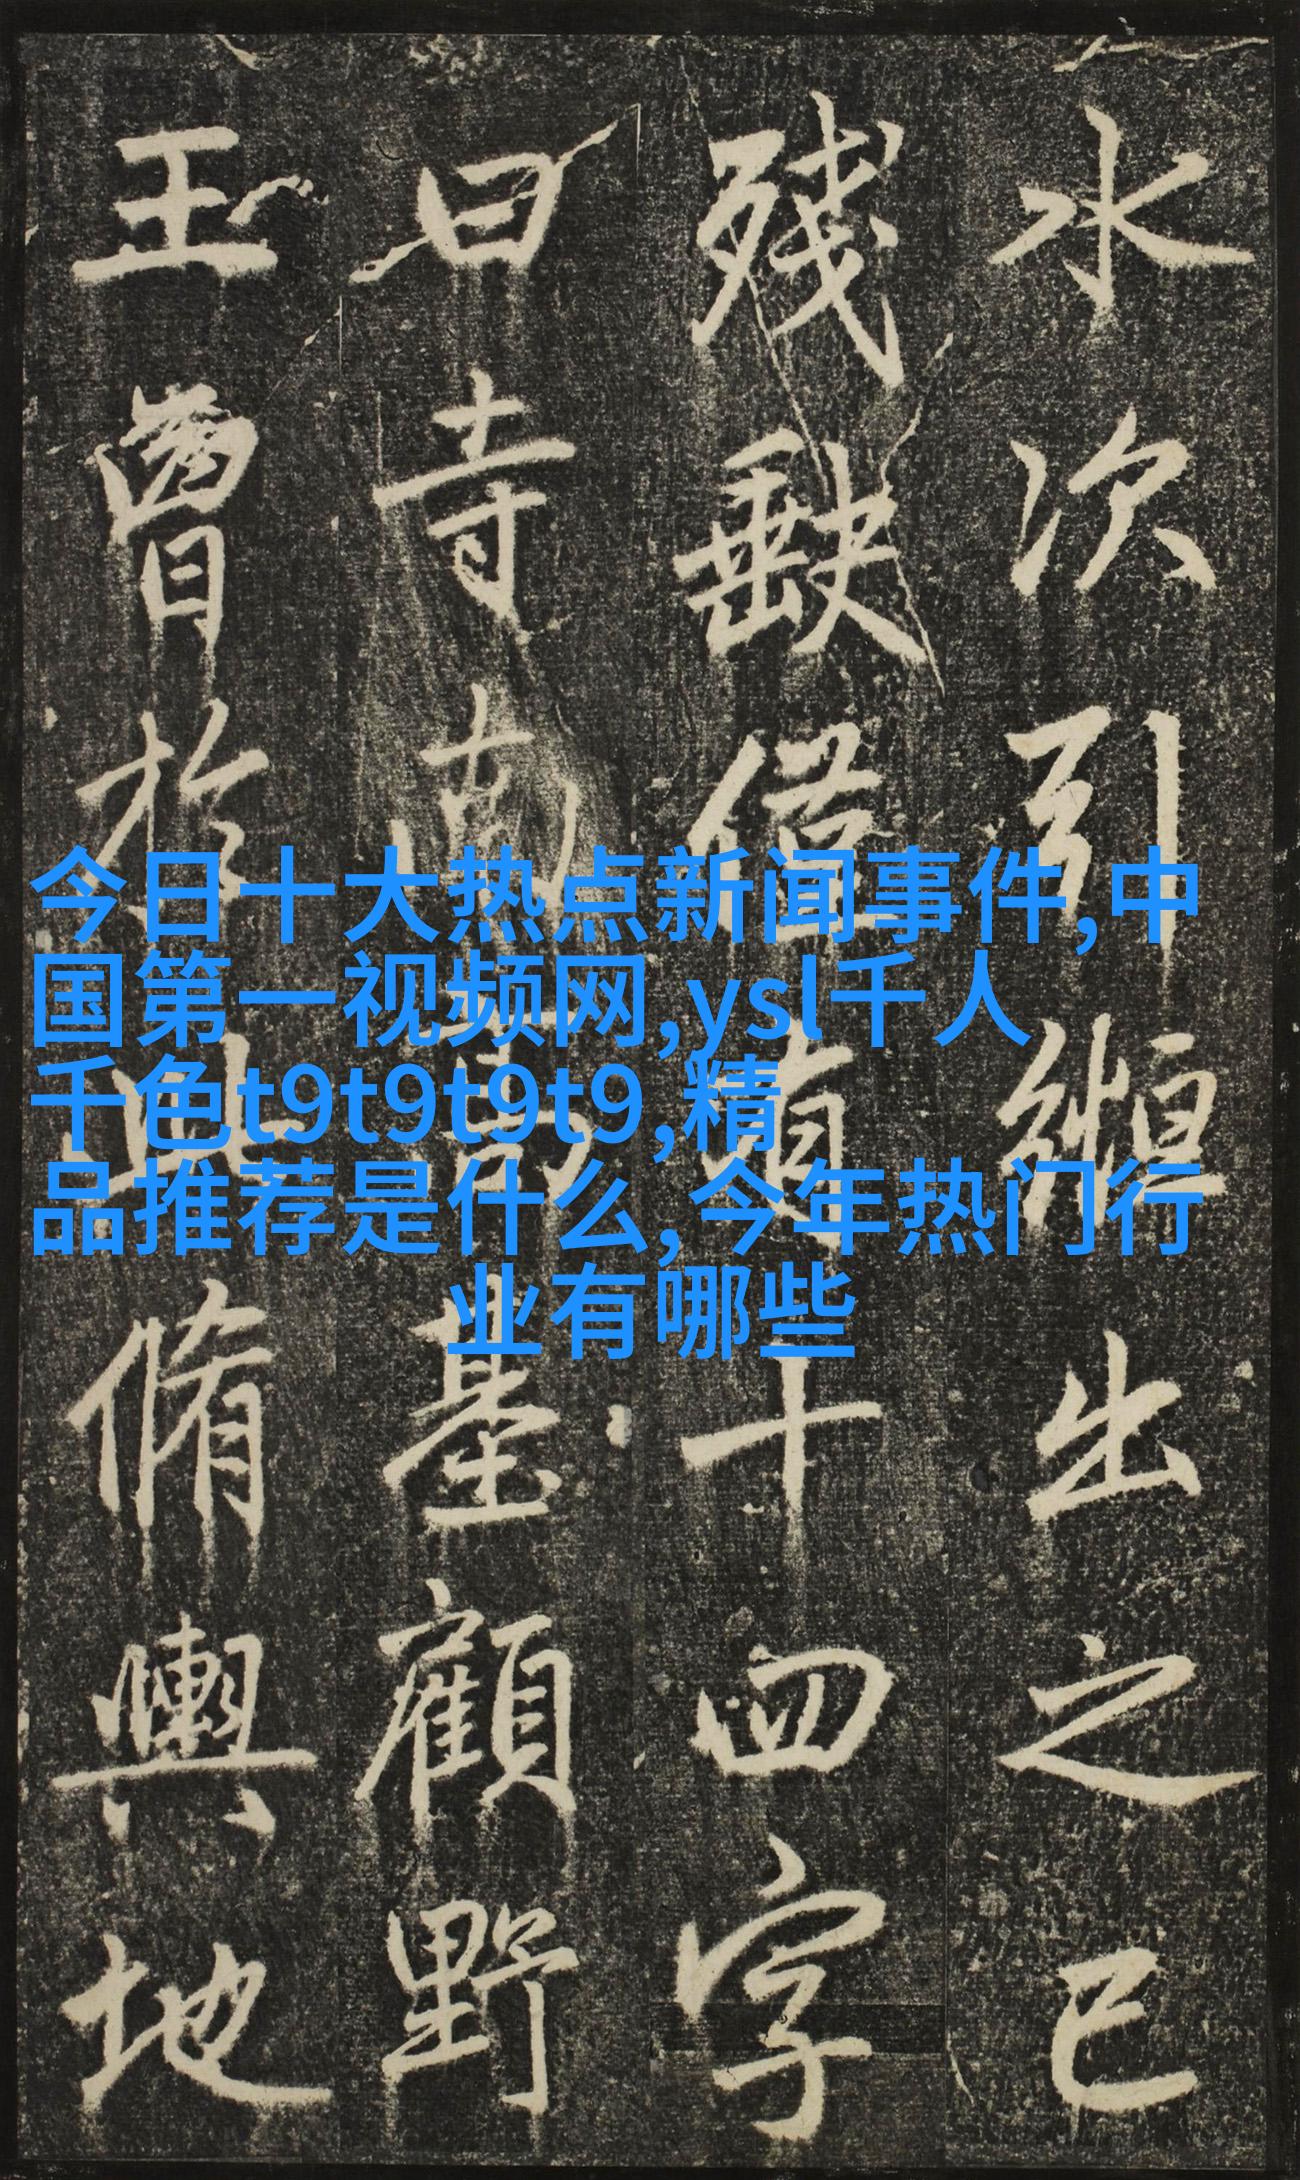 水次引縆出之已
殘缺僅有十四字
曰寺南高基顧野
王曾於此脩輿地
今日十大热点新闻事件,中
国第一视频网,ysl千人
千色t9t9t9t9,精
品推荐是什么,今年热门行
业有哪些